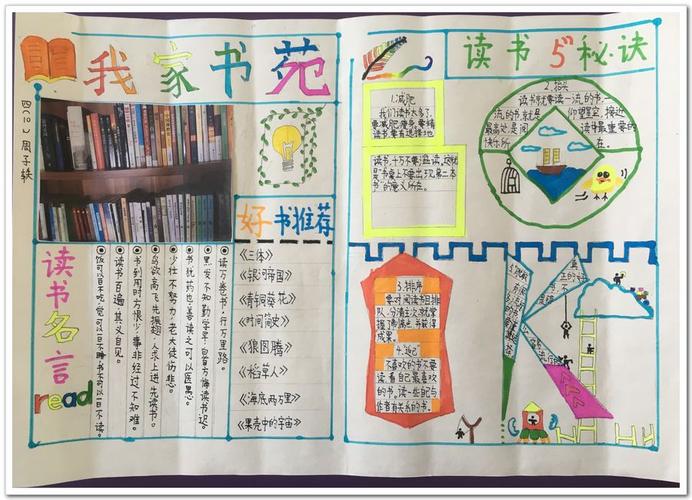 我家书苑
四(10) 周子轶
好书推荐
《三体》
《银河帝国》
《青铜葵花》
《时间简史》
《狼图腾》
《稻草人》
《海底两万里》
《果壳中的宇宙》
读书名言
read
读万卷书，行万里路。
黑发不知勤学早，白首方悔读书迟。
书犹药也，善读之可以医愚。
少壮不努力，老大徒伤悲。
鸟欲高飞先振翅，人求上进先读书。
书到用时方恨少，事非经过不知难。
读书百遍，其义自见。
饭可以一日不吃，觉可以一日不睡，书不可以一日不读。
读书5秘诀
1.减肥
我们读书太多了，
要减肥瘦身，要精
读书要有选择地
读书，千万不要
2.抬头
读书就要读一流的书，一
流的书，就是
仰望星空，接近
最高处，是
读书最重要的
快乐所
在。
3.排序
要对阅读书目排
队，分清主次，就掌
成果。
不喜欢的书不要
读，看自己最喜欢
的书，读一些自己与
作者有关系的书。